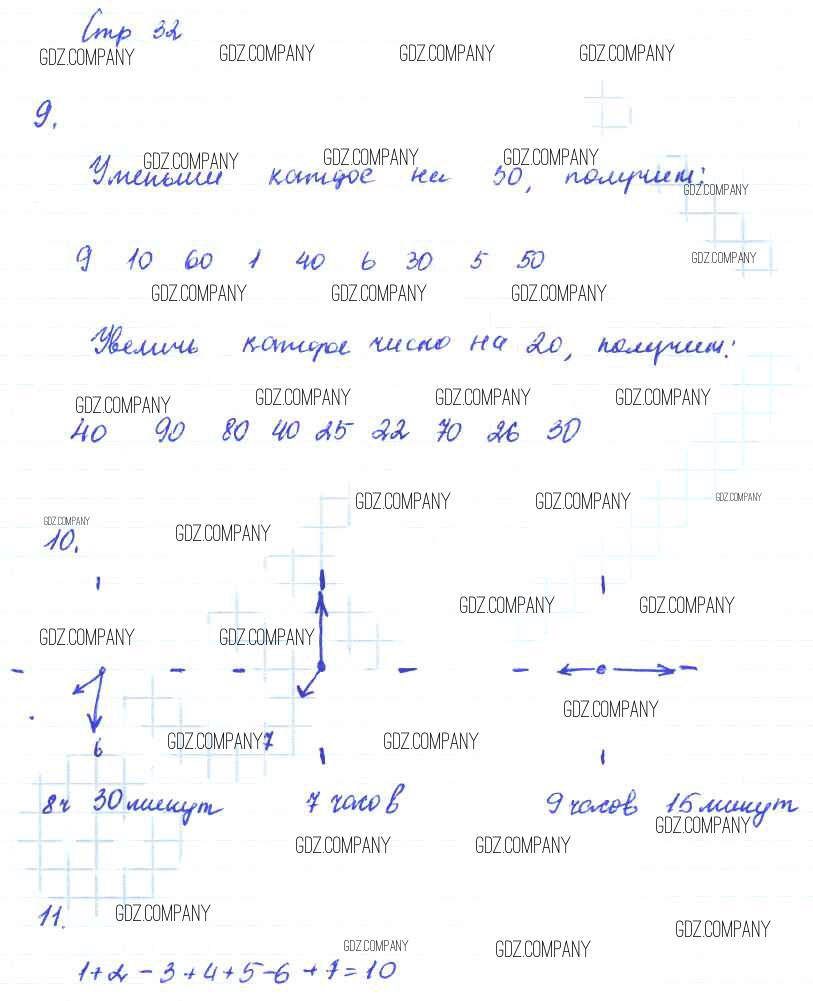 Стр 32
GDZ.COMPANY GDZ.COMPANY GDZ.COMPANY GDZ.COMPANY
9.
GDZ.COMPANY GDZ.COMPANY GDZ.COMPANY
Уменьши каждое на 50, получим:
GDZ.COMPANY
9 10 60 1 40 6 30 5 50
GDZ.COMPANY
GDZ.COMPANY GDZ.COMPANY GDZ.COMPANY
Увеличь каждое число на 20, получим:
GDZ.COMPANY GDZ.COMPANY GDZ.COMPANY GDZ.COMPANY
40 90 80 40 25 22 70 26 30
GDZ.COMPANY GDZ.COMPANY GDZ.COMPANY
GDZ.COMPANY GDZ.COMPANY
10.
GDZ.COMPANY GDZ.COMPANY
GDZ.COMPANY GDZ.COMPANY
GDZ.COMPANY
GDZ.COMPANY 7 GDZ.COMPANY
6
8ч 30 минут 7 часов 9 часов 15 минут
GDZ.COMPANY
GDZ.COMPANY GDZ.COMPANY
11. GDZ.COMPANY
GDZ.COMPANY
GDZ.COMPANY GDZ.COMPANY
1+2-3+4+5-6+7=10